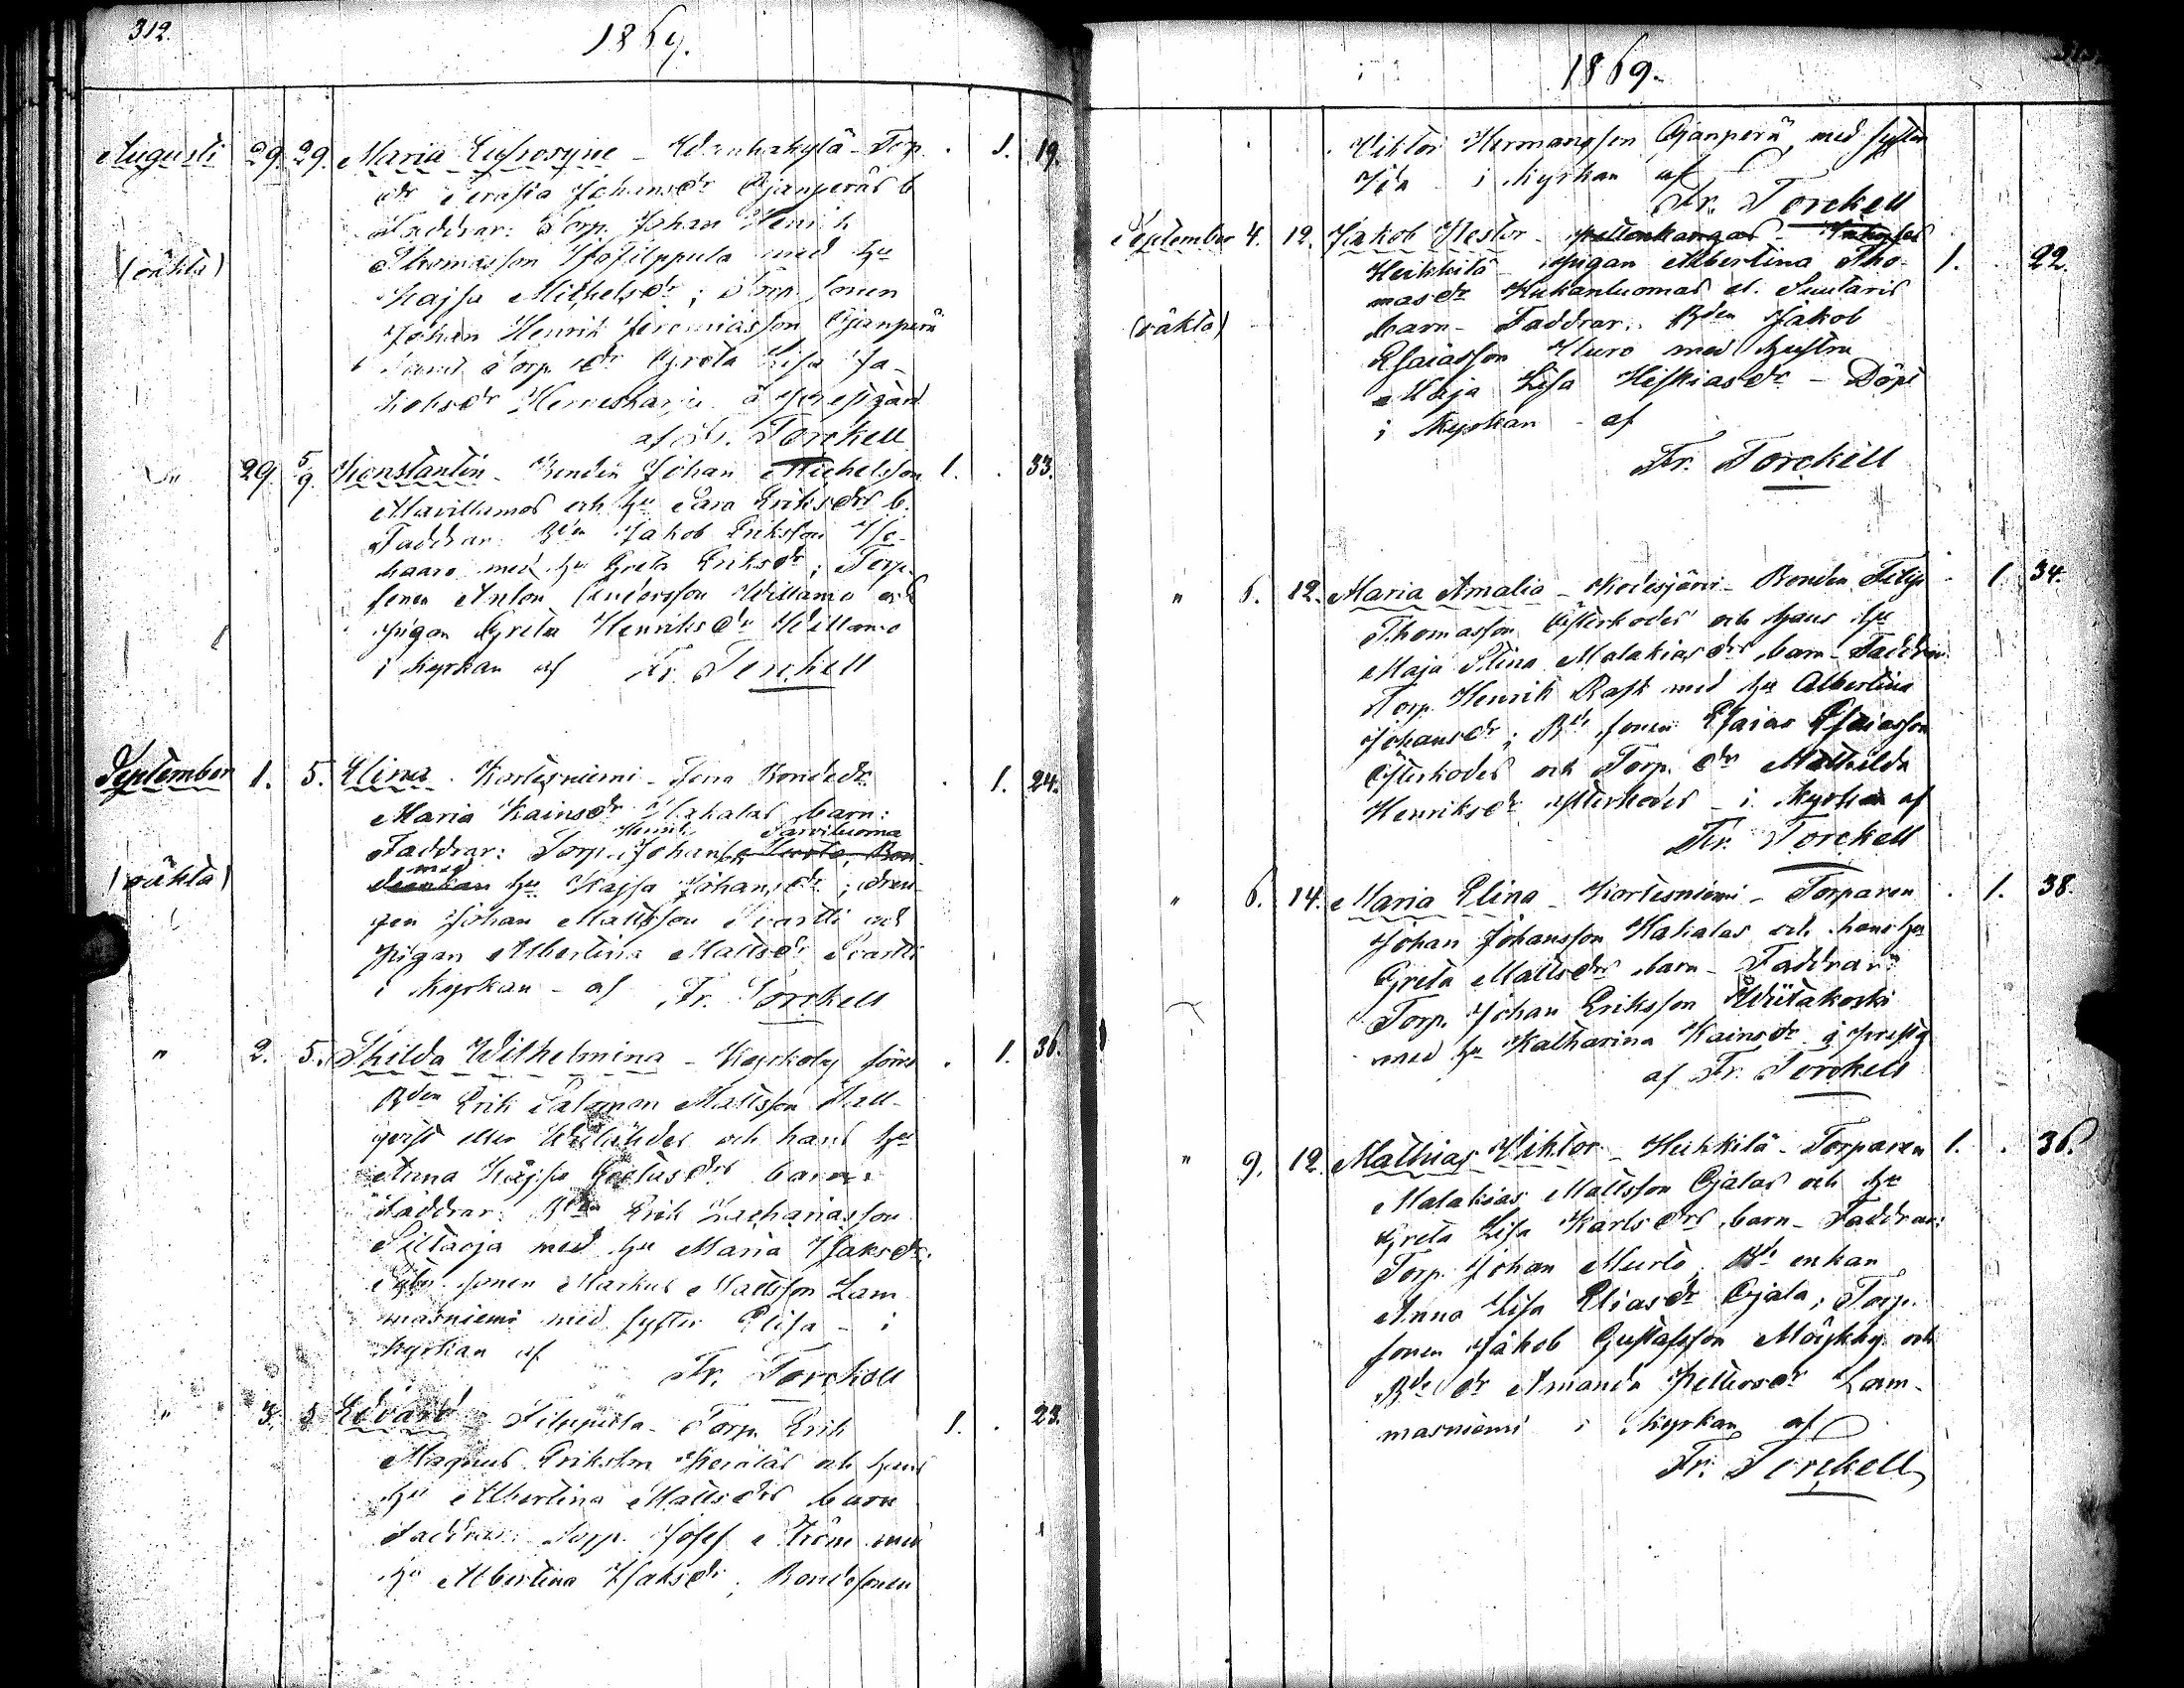 312.
1869.
Augusti 29. 29. Maria Eufrosyne - Wanhakylä - Torp. . 1. 19.
dr Serafia Johansdr Ojanperäs b
Faddrar: Torp. Johan Henrik
(oäkta) Thomasson Isofilppula med hu
Kajsa Mikhelsdr; Torp. sonen
Johan Henrik Jeremiasson Ojanperä
samt Torp. dr Greta Lisa Ja-
kobsdr å prestgård
af Fr. Torckell
" 29. 5/9. Konstantin - Bonden Johan Michelsson 1. . 33.
Alavillamos och hu Sara Eriksdrs b.
Faddrar: Bden Jakob Eriksson
haaro med hu Greta Eriksdr; Torp.
sonen Anton Andersson Willamo och
pigan Greta Henriksdr Willamo
i kyrkan af Fr. Torckell
September 1. 5. Elina - Kortesniemi - Bondedr . 1. 24.
Maria Kainsdr Hakalas barn:
Henrik Sarviluoma
Faddrar: Torp. Johan
(oäkta) med hu Kajsa Johansdr; drän-
gen Johan Mattsson Svartti och
pigan Albertina Mattsdr Svartti
i kyrkan - af Fr. Torckell
" 2. 5. Thilda Wilhelmina - Kyrkoby . 1. 36.
Bden Erik Salomon Mattsson
qvist eller och hans hu
Anna Kajsa barn:
Faddrar: Bden Erik Zachariasson
Siltaoja med hu Maria Isaksdr;
sonen Markus Mattsson Lam-
masniemi med syster Elisa - i
kyrkan af
Fr. Torckell
" 3. 5. Edvard - Filppula - Torp. Erik 1. . 23.
Magnus Eriksson och hans
hu Albertina Mattsdrs barn
Faddrar: Torp. Josef Ström med
hu Albertina Isaksdr; Bondesonen
1869.
Viktor Hermansson Ojanperä med syster
Ida - i kyrkan af
Fr. Torckell
September 4. 12. Jakob Nestor -
Heikkilä - Pigan Albertina Tho- 1. . 22.
masdr Kukanluomas el. Suutaris
(oäkta) barn - Faddrar: Bden Jakob
Esaiasson Kuro med hustru
Maja Lisa Hiskiasdr - Döpt
i kyrkan - af
Fr. Torckell
" 6. 12. Maria Amalia - Kodesjärvi - Bonden Filip . 1. 34.
Thomasson Ytterkodes och hans hu
Maja Stina Malakiasdrs barn - Faddrar:
Torp. Henrik Rask med hu Albertina
Johansdr; Bde sonen Esaias Esaiasson
Ytterkodes och Torp. dr Mathilda
Henriksdr Ytterkodes - i kyrkan af
Fr. Torckell
" 6. 14. Maria Elina - Kortesniemi - Torparen . 1. 38.
Johan Johansson Hakalas och hans hu
Greta Mattsdrs barn - Faddrar:
Torp. Johan Eriksson Wiitakoski
med hu Katharina Kainsdr å prestg
af Fr. Torckell
" 9. 12. Mathias Viktor - Heikkilä - Torparen 1. . 36.
Malakias Mattsson Ojalas och hu
Greta Lisa Karlsdrs barn - Faddrar:
Torp. Johan Murto, Bde enkan
Anna Lisa Eliasdr Ojala; Torp.
sonen Jakob Gustafsson Möykky och
Bde dr Amanda Pettersdr Lam-
masniemi i kyrkan af
Fr. Torckell